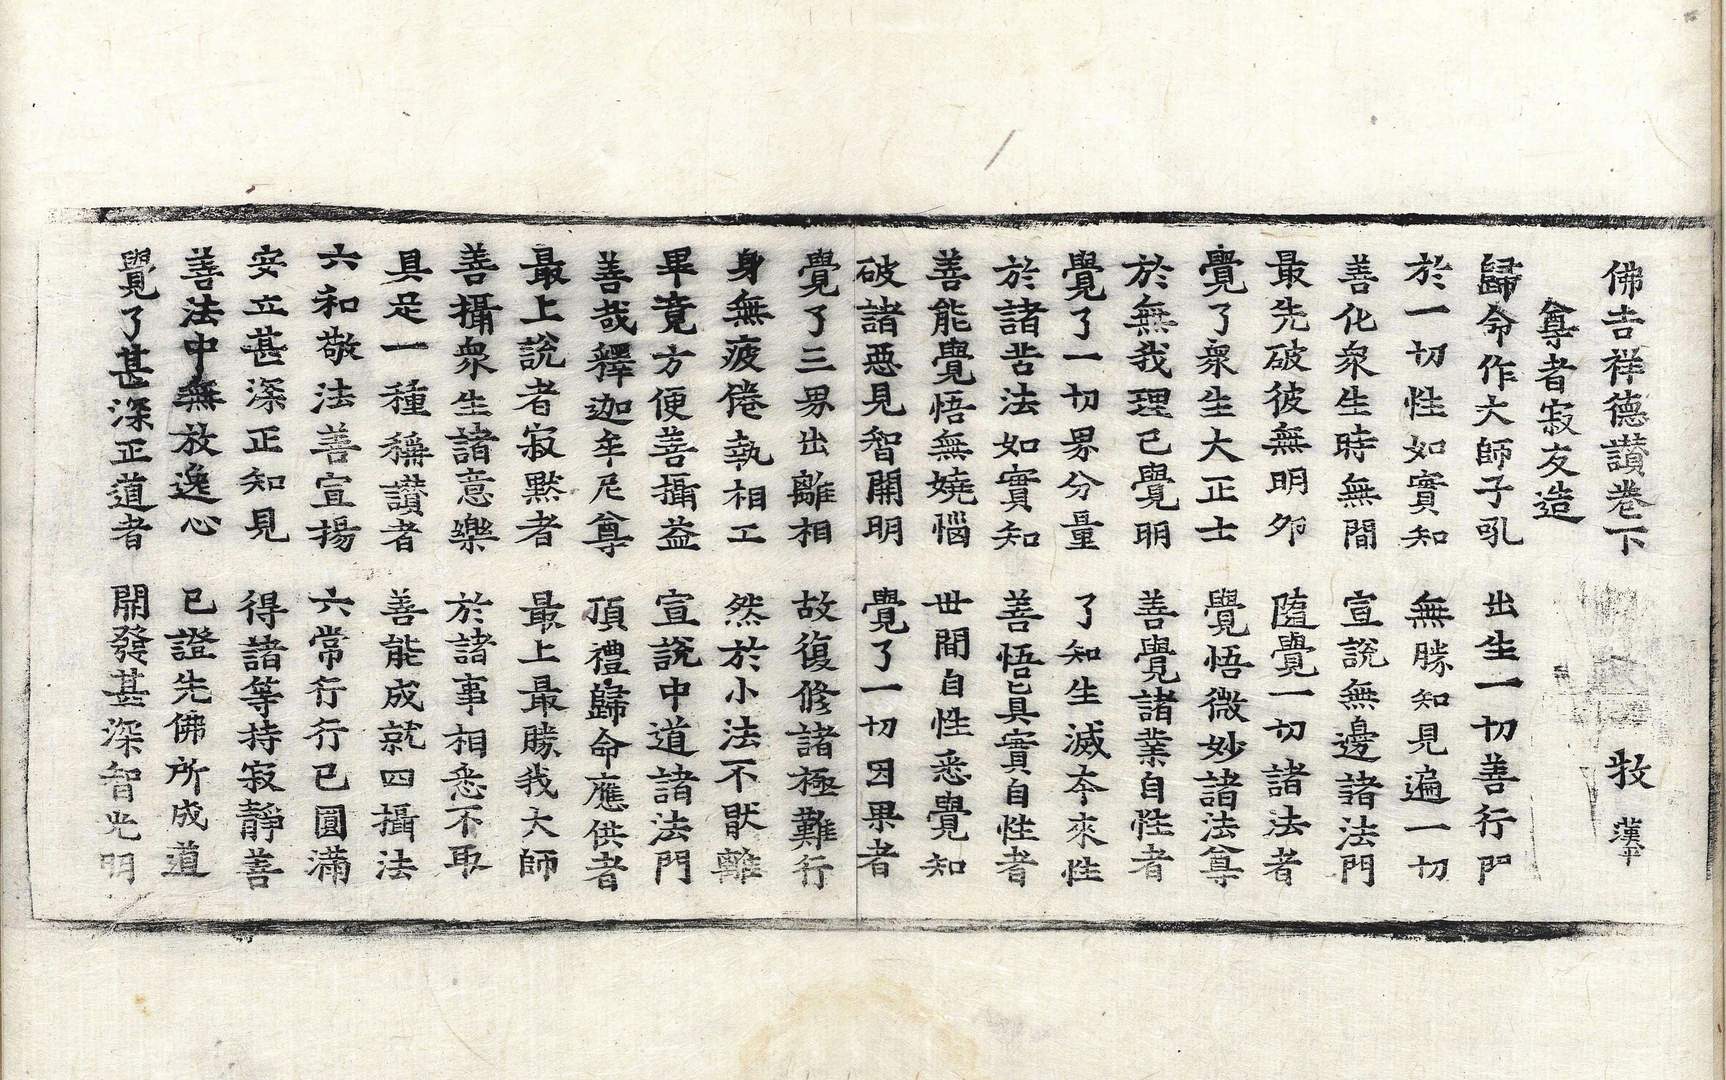 佛吉祥德讚卷下 牧 漢平
尊者寂友造
歸命作大師子吼 出生一切善行門
於一切性如實知 無勝知見遍一切
善化衆生時無間 宣說無邊諸法門
最先破彼無明夘 隨覺一切諸法者
覺了衆生大正士 覺悟微妙諸法尊
於無我理己覺明 善覺諸業自性者
覺了一切界分量 了知生滅本來性
於諸苦法如實知 善悟眞實自性者
善能覺悟無嬈惱 世間自性悉覺知
破諸惡見智開明 覺了一切因果者
覺了三界出離相 故復修諸極難行
身無疲倦執相工 然於小法不猒離
畢竟方便善攝益 宣說中道諸法門
善哉釋迦牟尼尊 頂禮歸命應供者
最上說者寂默者 最上最勝我大師
善攝衆生諸意樂 於諸事相悉不取
具足一種稱讚者 善能成就四攝法
六和敬法善宣揚 六常行行已圓滿
安立甚深正知見 得諸等持寂靜善
善法中無放逸心 已證先佛所成道
覺了甚深正道者 開發甚深智光明